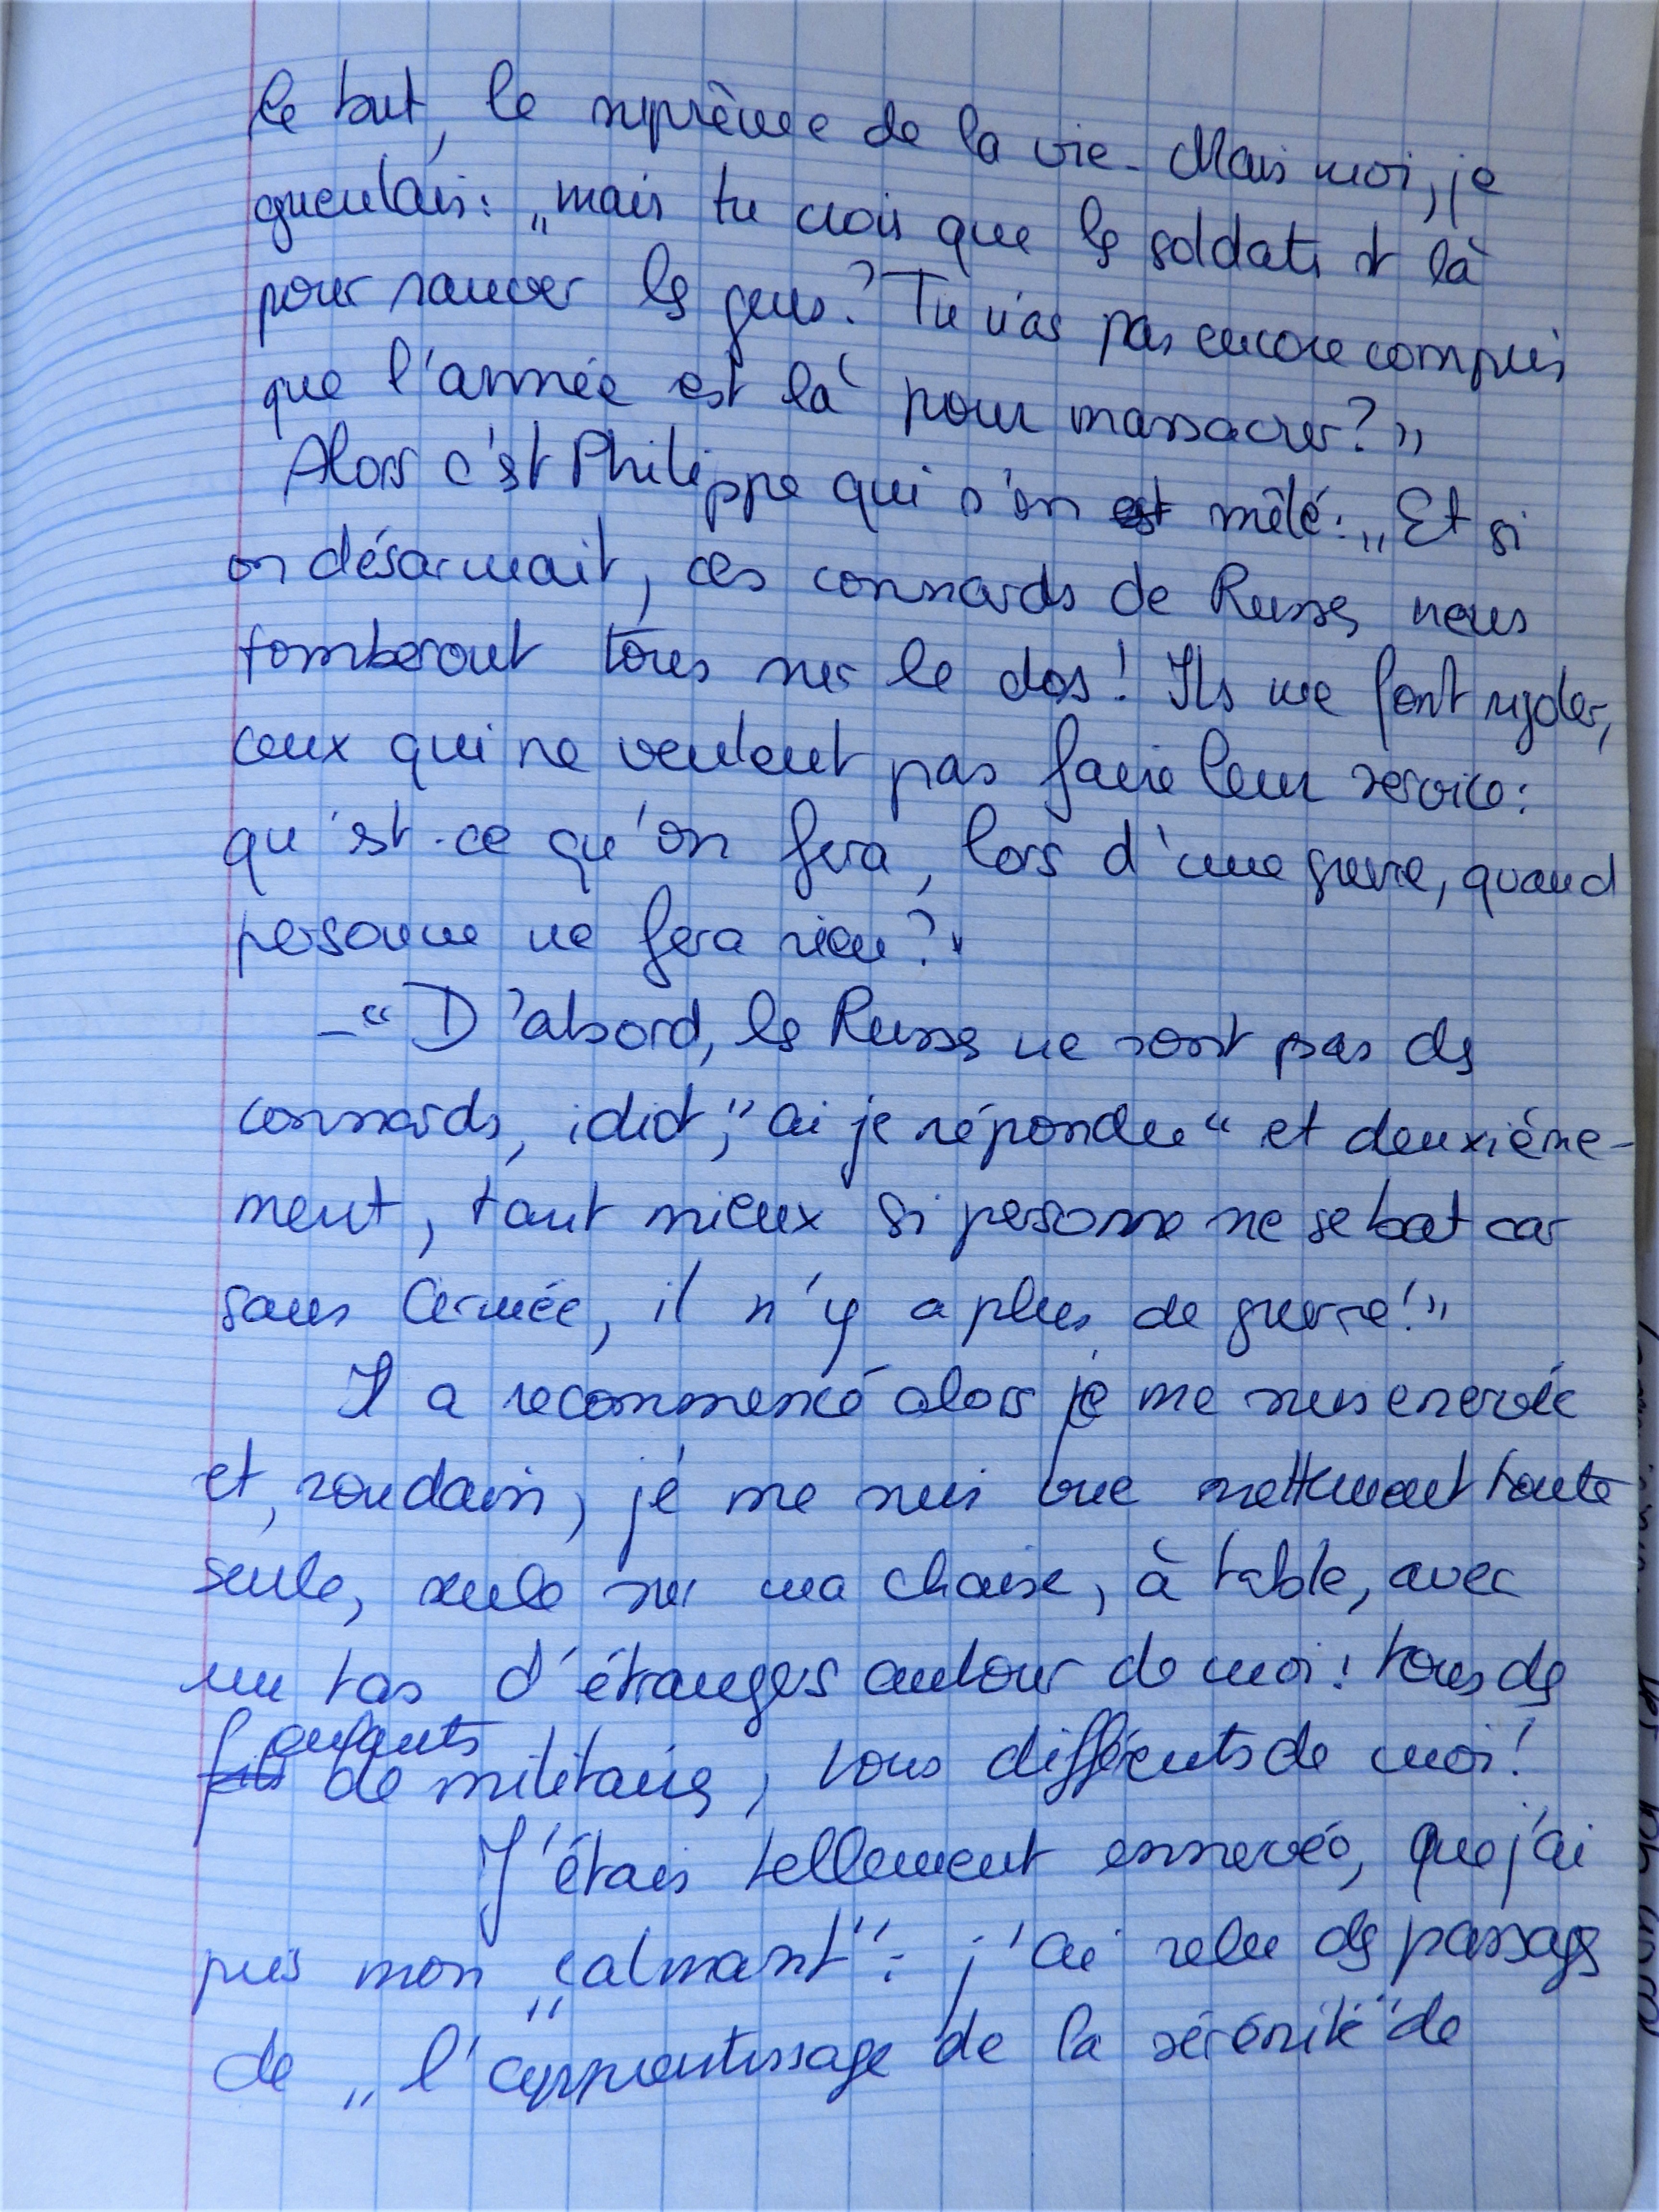 le tout, le suprême de la vie. Mais moi, je
gueulais: „mais tu crois que les soldats st là
pour sauver les gens? Tu n'as pas encore compris
que l'armée est là pour massacrer?"
Alors c'est Philippe qui s'en est mêlé: „Et si
on désarmait, ces connards de Russes nous
tomberont tous sur le dos! Ils me font rigoler,
ceux qui ne veulent pas faire leur service:
qu'est-ce qu'on fera, lors d'une guerre, quand
personne ne fera rien?"
-"D'abord, les Russes ne sont pas des
connards, idiot," ai je répondu "et deuxième-
ment, tant mieux si personne ne se bat car
sans armée, il n'y a plus de guerre!"
Il a recommencé alors je me suis enervée
et, soudain, je me suis vue nettement toute
seule, seule sur ma chaise, à table, avec
un tas d'étrangers autour de moi: tous des
enfants
fils de militaires, tous différents de moi!
J'étais tellement ennervée, que j'ai
pris mon „calmant": j'ai relu des passages
de „l'apprentissage de la sérénité" de